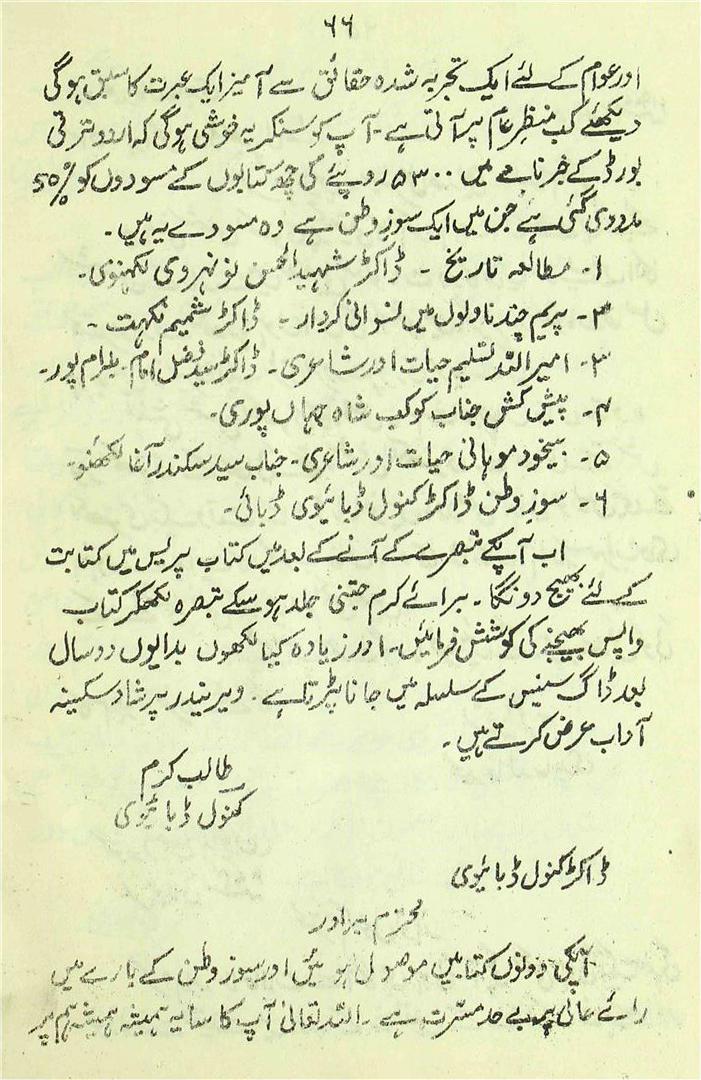 ۶۶
اور عوام کے لئے ایک تجربہ شدہ حقائق سے آمیز ایک عبرت کا سبق ہوگی
دیکھئے کب منظرِ عام پر آتی ہے۔ آپ کو سنکر یہ خوشی ہوگی کہ اردو ترقی
بورڈ کے خبرنامے میں ۵۳۰۰ روپئے کی چھ کتابوں کے مسودوں کو 50%
مدد دی گئی ہے جن میں ایک سوزِ وطن ہے وہ مسودے یہ ہیں۔
۱۔ مطالعہ تاریخ ۔ ڈاکٹر شہید الحسن نونہروی لکھنوی۔
۲۔ پریم چند ناولوں میں نسوانی کردار۔ ڈاکٹر شمیم نکہت ۔
۳۔ امیر اللہ تسلیم حیات اور شاعری۔ ڈاکٹر سید فضل امام۔ بلرام پور۔
۴۔ پیش کش جناب کوکب شاہ جہاں پوری۔
۵۔ بیخود موہانی حیات اور شاعری۔ جناب سید سکندر آغا لکھنو۔
۶۔ سوزِ وطن ڈاکٹر کنول ڈبائیوی ڈبائی۔
اب آپکے تبصرے کے آنے کے بعد میں کتاب پریس میں کتابت
کے لئے بھیج دونگا۔ برائے کرم جتنی جلد ہوسکے تبصرہ لکھکر کتاب
واپس بھیجنے کی کوشش فرمائیں۔ اور زیادہ کیا لکھوں بدایوں دو سال
بعد ڈاگ سنیس کے سلسلہ میں جانا پڑتا ہے۔ ویریندر پرشاد سکسینہ
آداب عرض کرتے ہیں۔
طالب کرم
کنول ڈبائیوی
ڈاکٹر کنول ڈبائیوی
محترم برادر
آپکی دونوں کتابیں موصول ہوئیں اور سوزِ وطن کے بارے میں
رائے عالی پر بے حد مسّرت ہے ۔ اللہ تعالیٰ آپ کا سایہ ہمیشہ ہمیشہ ہم پر